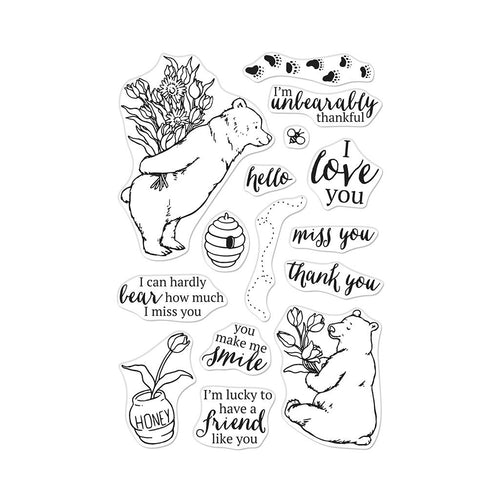 I'm
unbearably
thankful
I
love
you
hello
miss you
thank you
I can hardly
bear how much
I miss you
you
make me
smile
I'm lucky to
have a
friend
like you
HONEY